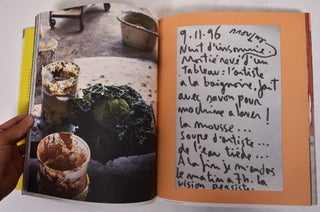 9.11.96
Nuit d'insomnie.
Moitié rêve d'un
tableau: l'artiste
a la baignoire, fait
avec savon pour
machine a laver!
la mousse...
soupe d'artiste...
de l'eau tiède...
A la fin, je m'endors
le matin a 7h. la
vision persiste